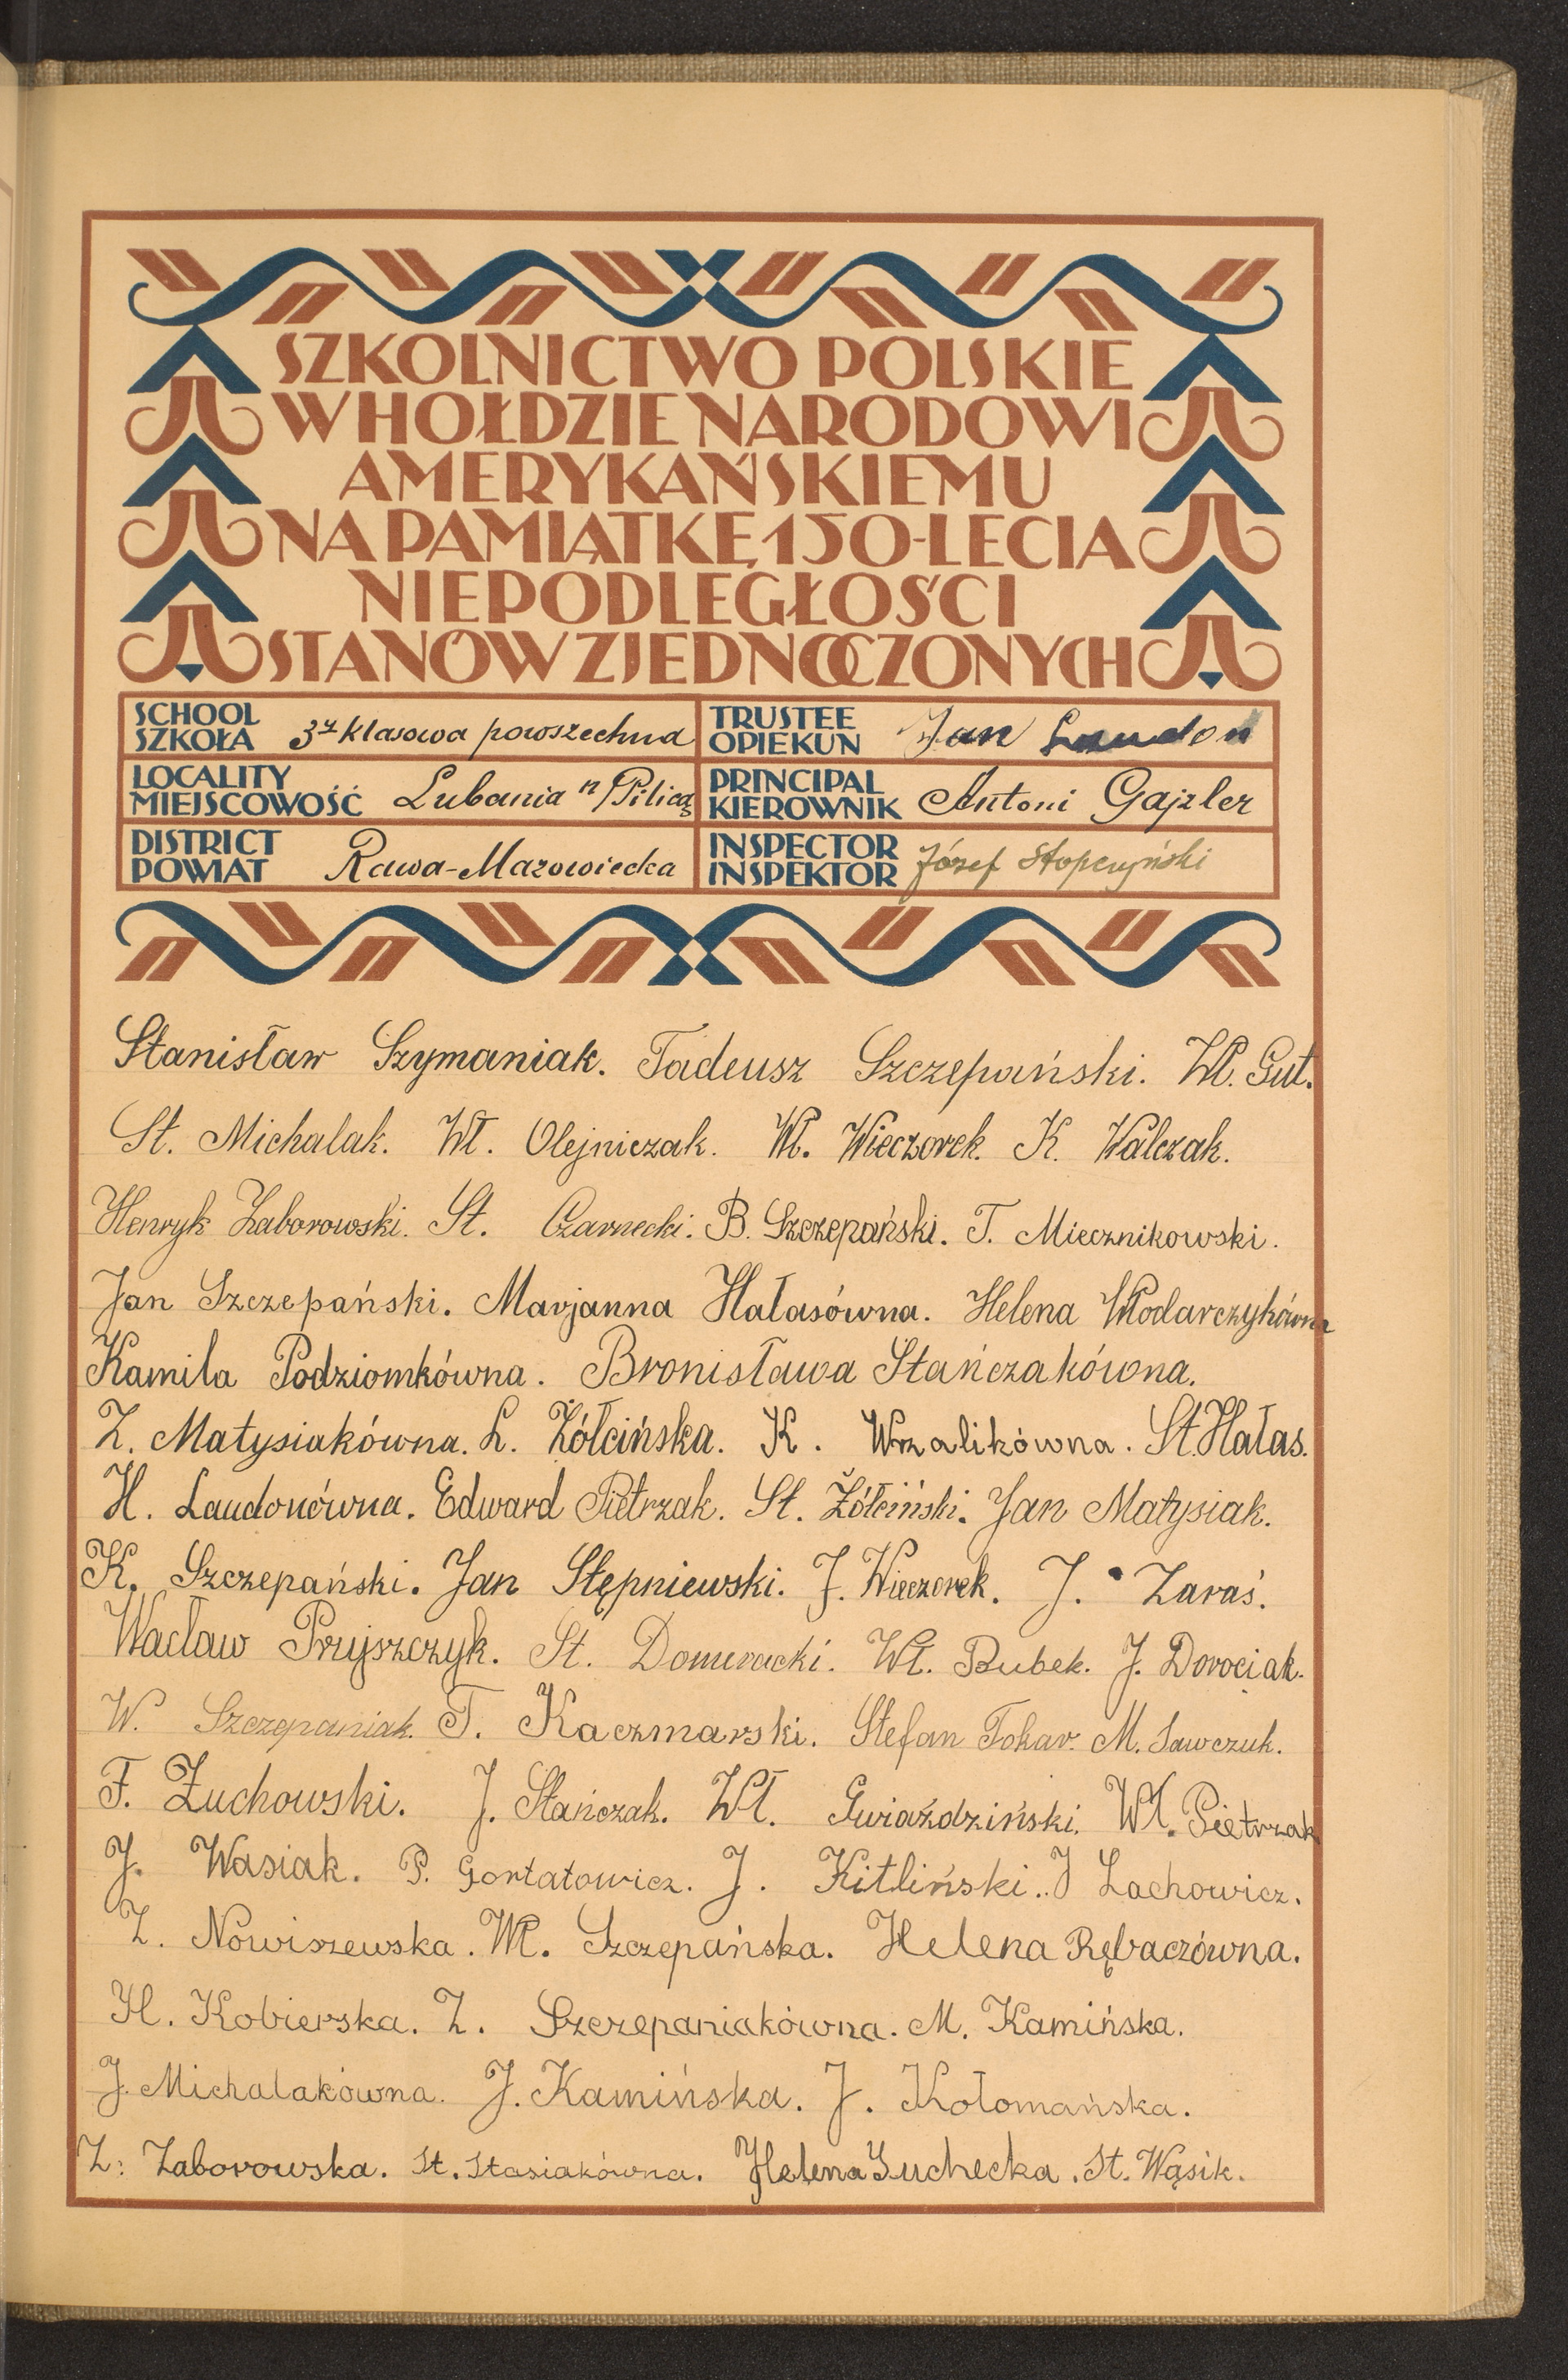 SZKOLNICTWO POLSKIE
W HOŁDZIE NARODOWI
AMERYKAŃSKIEMU
NA PAMIĄTKĘ 150-LECIA
NIEPODLEGŁOŚCI
STANÓW ZJEDNOCZONYCH
SCHOOL
SZKOŁA 3y klasowa powszechna
TRUSTEE
OPIEKUN Jan Laudon
LOCALITY
MIEJSCOWOŚĆ Lubania n/Pilicą
PRINCIPAL
KIEROWNIK Antoni Gajzler
DISTRICT
POWIAT Rawa-Mazowiecka
INSPECTOR
INSPEKTOR Józef Stopczyński
Stanisław Szymaniak. Tadeusz Szczepański. Wł. Gut.
St. Michalak. Wł. Olejniczak. Wł. Wieczorek. K. Walczak.
Henryk Zaborowski. St. Czarnecki. B. Szczepański. T. Miecznikowski.
Jan Szczepański. Marjanna Hałasówna. Helena Włodarczykówna
Kamila Podziomkówna. Bronisława Stańczakówna.
Z. Matysiakówna. L. Żółcińska. K. Wrzalikówna. St. Hałas.
H. Laudonówna. Edward Pietrzak. St. Żółciński. Jan Matysiak.
K. Szczepański. Jan Stępniewski. J. Wieczorek. J. Zaraś.
Wacław Pryjszczyk. St. Domeracki. Wł. Bubek. J. Dorociak.
W. Szczepaniak. T. Kaczmarski. Stefan Tokar. M. Sawczuk.
F. Żuchowski. J. Stańczak. Wł. Gwiaździński. Wł. Pietrzak
J. Wasiak. P. Gortatowicz. J. Kitliński. J Lachowicz.
Z. Nowiszewska. Wł. Szczepańska. Helena Rębaczówna.
H. Kobierska. Z. Szczepaniakówna. M. Kamińska.
J. Michalakówna. J. Kamińska. J. Kołomańska.
Z. Zaborowska. St. Stasiakówna. Helena Suchecka. St. Wąsik.